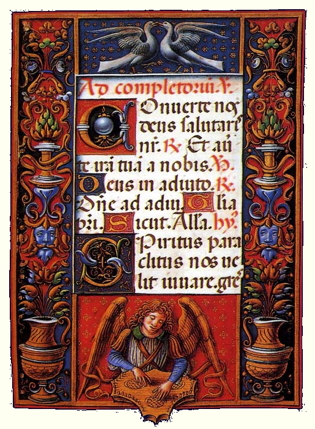 Ad completoriũ. ℣.
Onuerte nos
deus salutaris
nr̃. ℟. Et auer
te irã tuã a nobis. ℣.
Deus in adiuto. ℟.
Dñe ad adiu. Glia
pr̃i. Sicut. Alla. hỹ.
Spiritus para
clitus nos ue
lit iuuare. gres